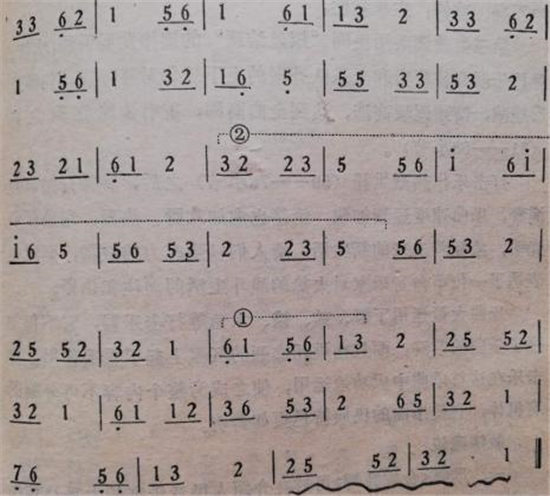 33 6̣2 | 1 5̣6̣ | 1 6̣1 | 13 2 | 33 6̣2 |
1 5̣6̣ | 1 32 | 16̣ 5̣ | 55 33 | 53 2 |
②
23 21 | 6̣1 2 | 32 23 | 5 56 | i 6i |
i6 5 | 56 53 | 2 23 | 5 56 | 53 2 |
①
25 52 | 32 1 | 6̣1 5̣6̣ | 13 2 | 25 52 |
32 1 | 6̣1 12 | 36 53 | 2 65 | 32 1 |
7̣6̣ 5̣6̣ | 13 2 | 25 52 | 32 1 ‖